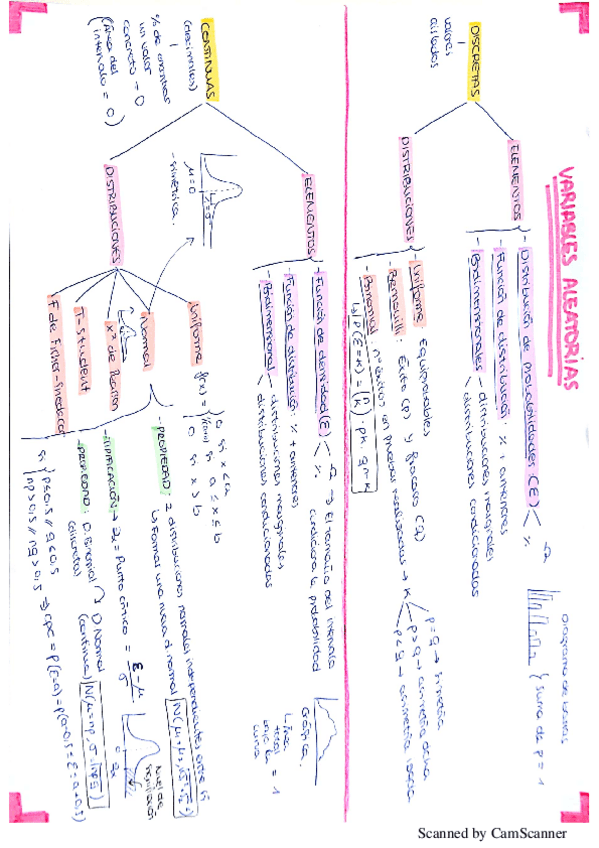 VARIABLES ALEATORIAS
DISCRETAS
valores
aislados
ELEMENTOS
- Distribución de probabilidades (E)
%
Diagrama de barras
suma de p = 1
- Función de distribución: % + anteriores
- Bidimensionales
distribuciones marginales
distribuciones condicionadas
DISTRIBUCIONES
- Uniforme Equiprobables
- Bernouilli: Éxito (p) y fracaso (q)
- Binomial nº éxitos en pruebas realizadas → K
p = q → simetría
p > q → asimetría
p < q → asimetría
P(E=K) = (n k) · pk · qn-k
CONTINUAS
(decimales)
% de
un valor
concreto → 0
(Área del
intervalo = 0)
ELEMENTOS
- Función de densidad (E)
%
→ El tamaño del intervalo
condiciona la probabilidad
Gráfica
Línea
total
bajo la = 1
- Función de distribución % + anteriores
- Bidimensional
distribuciones marginales
distribuciones condicionadas
μ = 0
- simétrica.
DISTRIBUCIONES
Uniforme f(x) =
0 si x < a
si a ≤ x ≤ b
0 si x > b
Normal
- PROPIEDAD: 2 distribuciones normales independientes entre sí
↳ Forman una nueva d. normal
X² de Pearson
T-Student
F de Fisher-Snedecor
- TIPIFICACIÓN → Zα = Punto crítico = E - μ / σ
0 zα
Nivel de
significación
- PROPIEDAD: D. Binomial
(discreta)
D. Normal
(continua)
N(μ = np, σ = √npq)
si
p ≤ 0,5 // q < 0,5
np > 0,5 // nq > 0,5
⇒ cpc = P(E=a) = P(a-0,5 ≤ E ≤ a+0,5)
Scanned by CamScanner